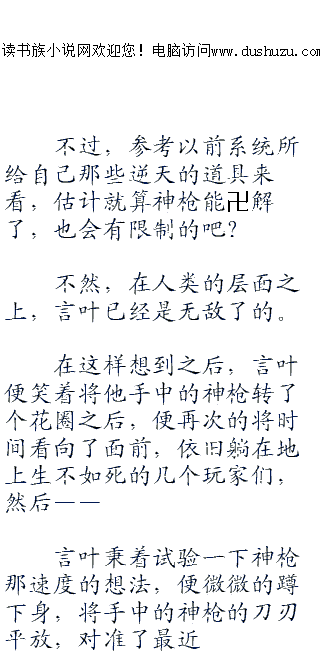 读书族小说网欢迎您！电脑访问www.dushuzu.com
不过，参考以前系统所
给自己那些逆天的道具来
看，估计就算神枪能卍解
了，也会有限制的吧？
不然，在人类的层面之
上，言叶已经是无敌了的。
在这样想到之后，言叶
便笑着将他手中的神枪转了
个花圈之后，便再次的将时
间看向了面前，依旧躺在地
上生不如死的几个玩家们，
然后——
言叶秉着试验一下神枪
那速度的想法，便微微的蹲
下身，将手中的神枪的刀刃
平放，对准了最近